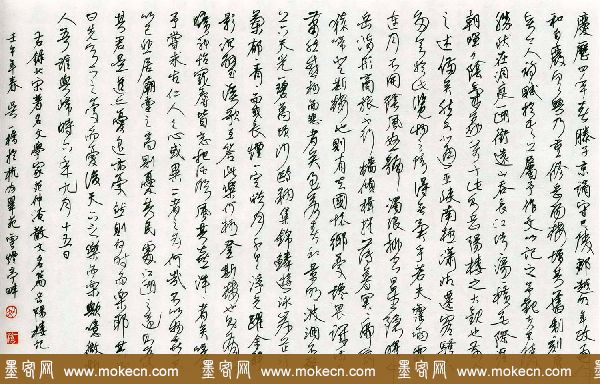 慶曆四年春滕子京謫守巴陵郡越明年政通
人和百廢具興乃重修岳陽樓增其舊制刻
唐賢今人詩賦於其上屬予作文以記之予觀夫巴陵
勝狀在洞庭一湖銜遠山吞長江浩浩湯湯橫無際涯
朝暉夕陰氣象萬千此則岳陽樓之大觀也前人
之述備矣然則北通巫峽南極瀟湘遷客騷人
多會於此覽物之情得無異乎若夫霪雨霏霏
連月不開陰風怒號濁浪排空日星隱曜山
岳潛形商旅不行檣傾楫摧薄暮冥冥虎嘯
猿啼登斯樓也則有去國懷鄉憂讒畏譏滿目
蕭然感極而悲者矣至若春和景明波瀾不驚
上下天光一碧萬頃沙鷗翔集錦鱗游泳岸芷汀
蘭郁郁青青而或長煙一空皓月千里浮光躍金靜
影沉璧漁歌互答此樂何極登斯樓也則有心
曠神怡寵辱皆忘把酒臨風其喜洋洋者矣嗟夫
予嘗求古仁人之心或異二者之為何哉不以物喜不
以己悲居廟堂之高則憂其民處江湖之遠則憂
其君是進亦憂退亦憂然則何時而樂耶其必
曰先天下之憂而憂後天下之樂而樂歟噫微斯
人吾誰與歸時六年九月十五日
右錄北宋著名文學家范仲淹散文名篇岳陽樓記
壬午年春吳一橋於杭州
墨客网 www.mokecn.com
墨客网 www.mokecn.com
墨客网 www.mokecn.com